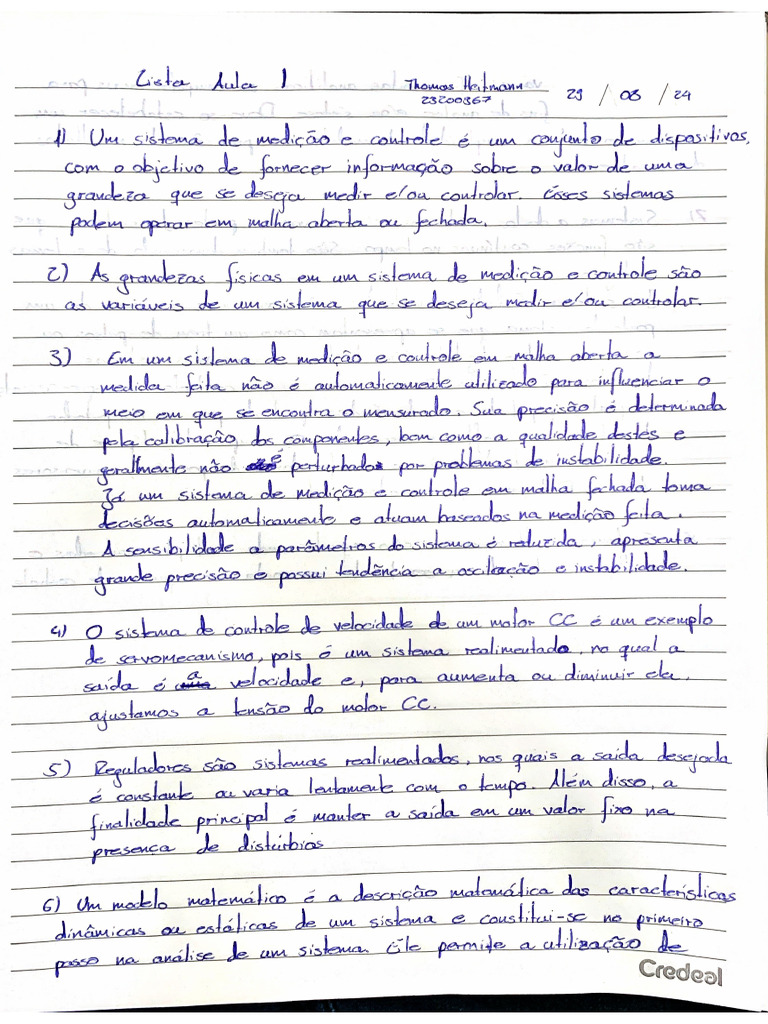 Lista Aula 1 Thomas Heitmann 29 / 08 / 24
23200367
1) Um sistema de medição e controle é um conjunto de dispositivos,
com o objetivo de fornecer informação sobre o valor de uma
grandeza que se deseja medir e/ou controlar. Esses sistemas
podem operar em malha aberta ou fechada.
2) As grandezas físicas em um sistema de medição e controle são
as variáveis de um sistema que se deseja medir e/ou controlar.
3) Em um sistema de medição e controle em malha aberta a
medida feita não é automaticamente utilizado para influenciar o
meio em que se encontra o mensurado. Sua precisão é determinada
pela calibração dos componentes, bem como a qualidade destes e
geralmente não é perturbados por problemas de instabilidade.
Já um sistema de medição e controle em malha fechada toma
decisões automaticamente e atuam baseados na medição feita.
A sensibilidade a parâmetros do sistema é reduzida, apresenta
grande precisão e possui tendência a oscilação e instabilidade.
4) O sistema de controle de velocidade de um motor CC é um exemplo
de servomecanismo, pois é um sistema realimentado, no qual a
saída é a velocidade e, para aumenta ou diminuir ela,
ajustamos a tensão do motor CC.
5) Reguladores são sistemas realimentados, nos quais a saída desejada
é constante ou varia lentamente com o tempo. Além disso, a
finalidade principal é manter a saída em um valor fixo na
presença de distúrbios
6) Um modelo matemático é a descrição matemática das características
dinâmicas ou estáticas de um sistema e constitui-se no primeiro
passo na análise de um sistema. Ele permite a utilização de
Credeal